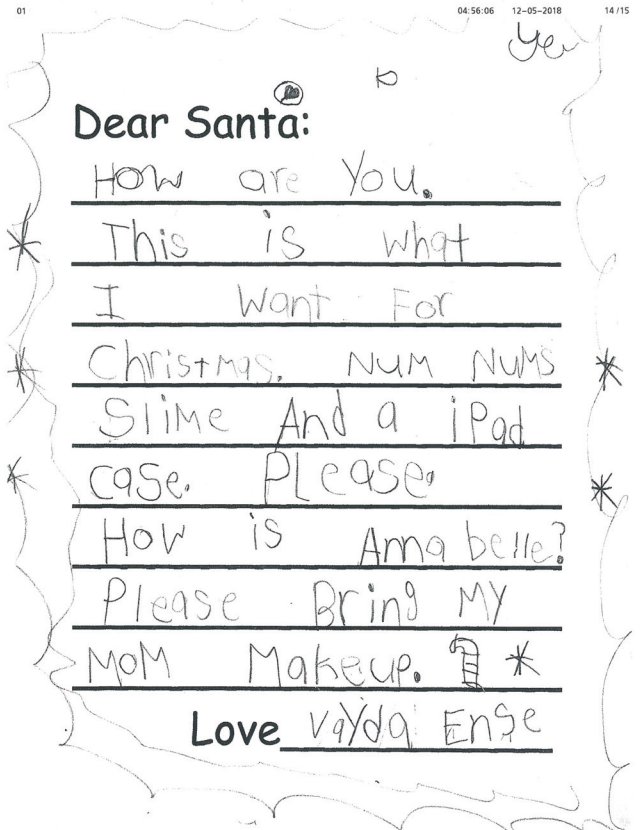 01 04:56:06 12-05-2018 14/15
Ye
Dear Santa:
How are You.
This is what
I Want For
Christmas. NUM NUMS
Slime And a iPad
case. Please.
How is Annabelle?
Please Bring MY
MoM Makeup.
Love Vayda Ense